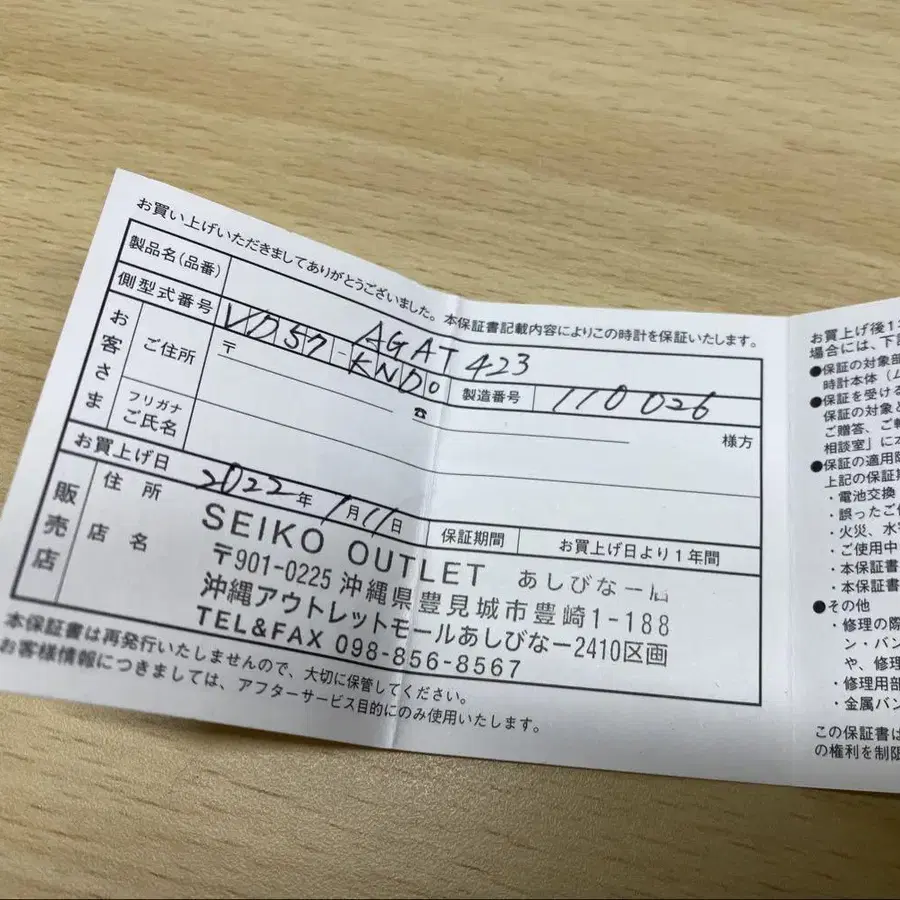 お買い上げいただきましてありがとうございました。本保証書記載内容によりこの時計を保証いたします。
製品名(品番) AGAT423
側型式番号 VD57-KND0 製造番号 110026
お客さま
ご住所 〒
☎
フリガナ
ご氏名 様方
お買上げ日 2022年1月11日 保証期間 お買上げ日より1年間
販売店
住所
店名
SEIKO OUTLET あしびなー店
〒901-0225 沖縄県豊見城市豊崎1-188
沖縄アウトレットモールあしびなー2410区画
TEL&FAX 098-856-8567
本保証書は再発行いたしませんので、大切に保管してください。
お客様情報につきましては、アフターサービス目的にのみ使用いたします。
お買上げ後1
場合には、下
●保証の対象部
時計本体(ム
●保証を受ける
保証の対象と
ご贈答、ご
相談室」に
●保証の適用
上記の保証期
・電池交換
・誤ったご使
・火災、水
・ご使用中
・本保証書
・本保証書
●その他
・修理の際
ン・バン
や、修理
・修理用部
・金属バン
この保証書は
の権利を制限